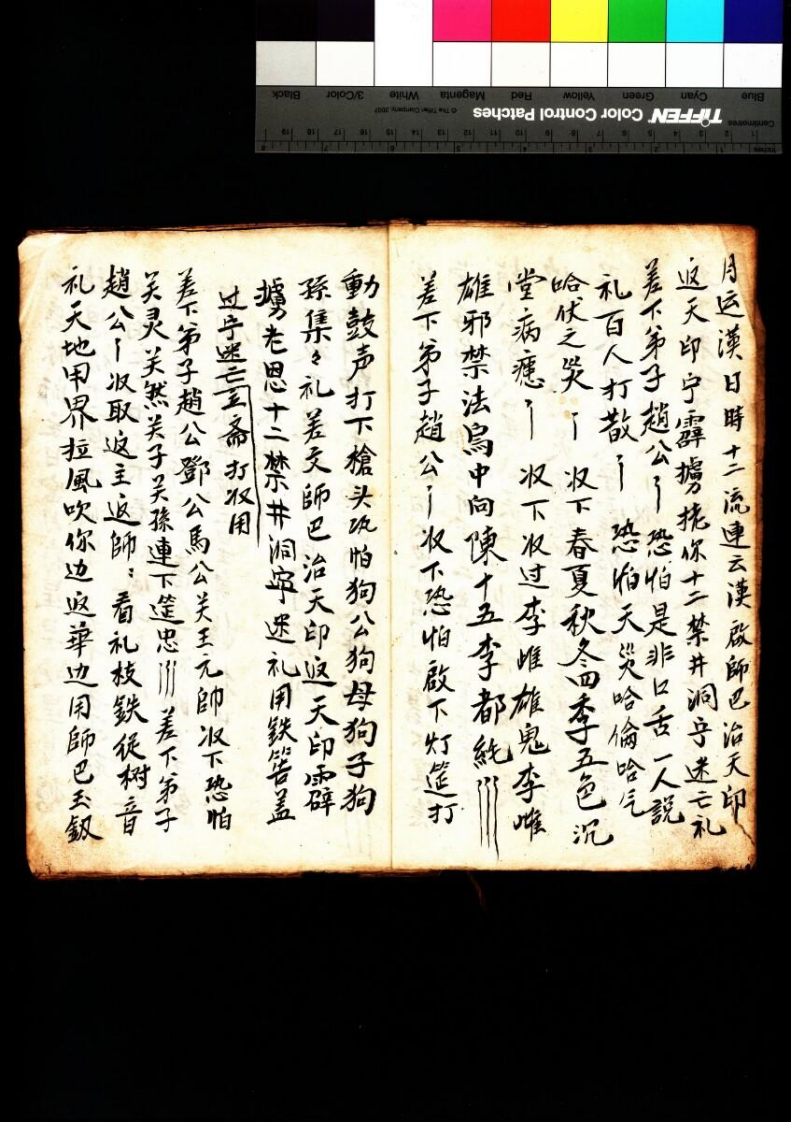 月运漢日時十二流連云漢啟師巴治天印
返天印宁霹擄拢你十二禁井洞宁迷亡礼
差下弟子趙公 恐怕是非口舌一人説
礼百人打散 恐怕天災哈倫哈乞
哈伏之災 收下春夏秋冬四季五色沉
堂病瘧 收下收过李雌雄鬼李雌
雄邪禁法烏中向陳十五李都統
差下弟子趙公 收下恐怕啟下灯筵打
動鼓声打下槍头巩怕狗公狗母狗子狗
孫集々礼差交師巴治天印返天印霹
擄老恩十二禁井洞寧迷礼用鉄筶盖
过宁迷亡立斋打收用
差下弟子趙公鄧公馬公关王元帥收下恐怕
关灵关煞关子关孫連下筵忠 差下弟子
趙公 收取返主返師〻看礼枝鉄從树音
礼天地用界拉風吹你边返華边用師巴玉釼
Blue Cyan Green Yellow Red Magenta White 3/Color Black
TIFFEN Color Control Patches
© The Tiffen Company, 2007
Centimetres
Inches